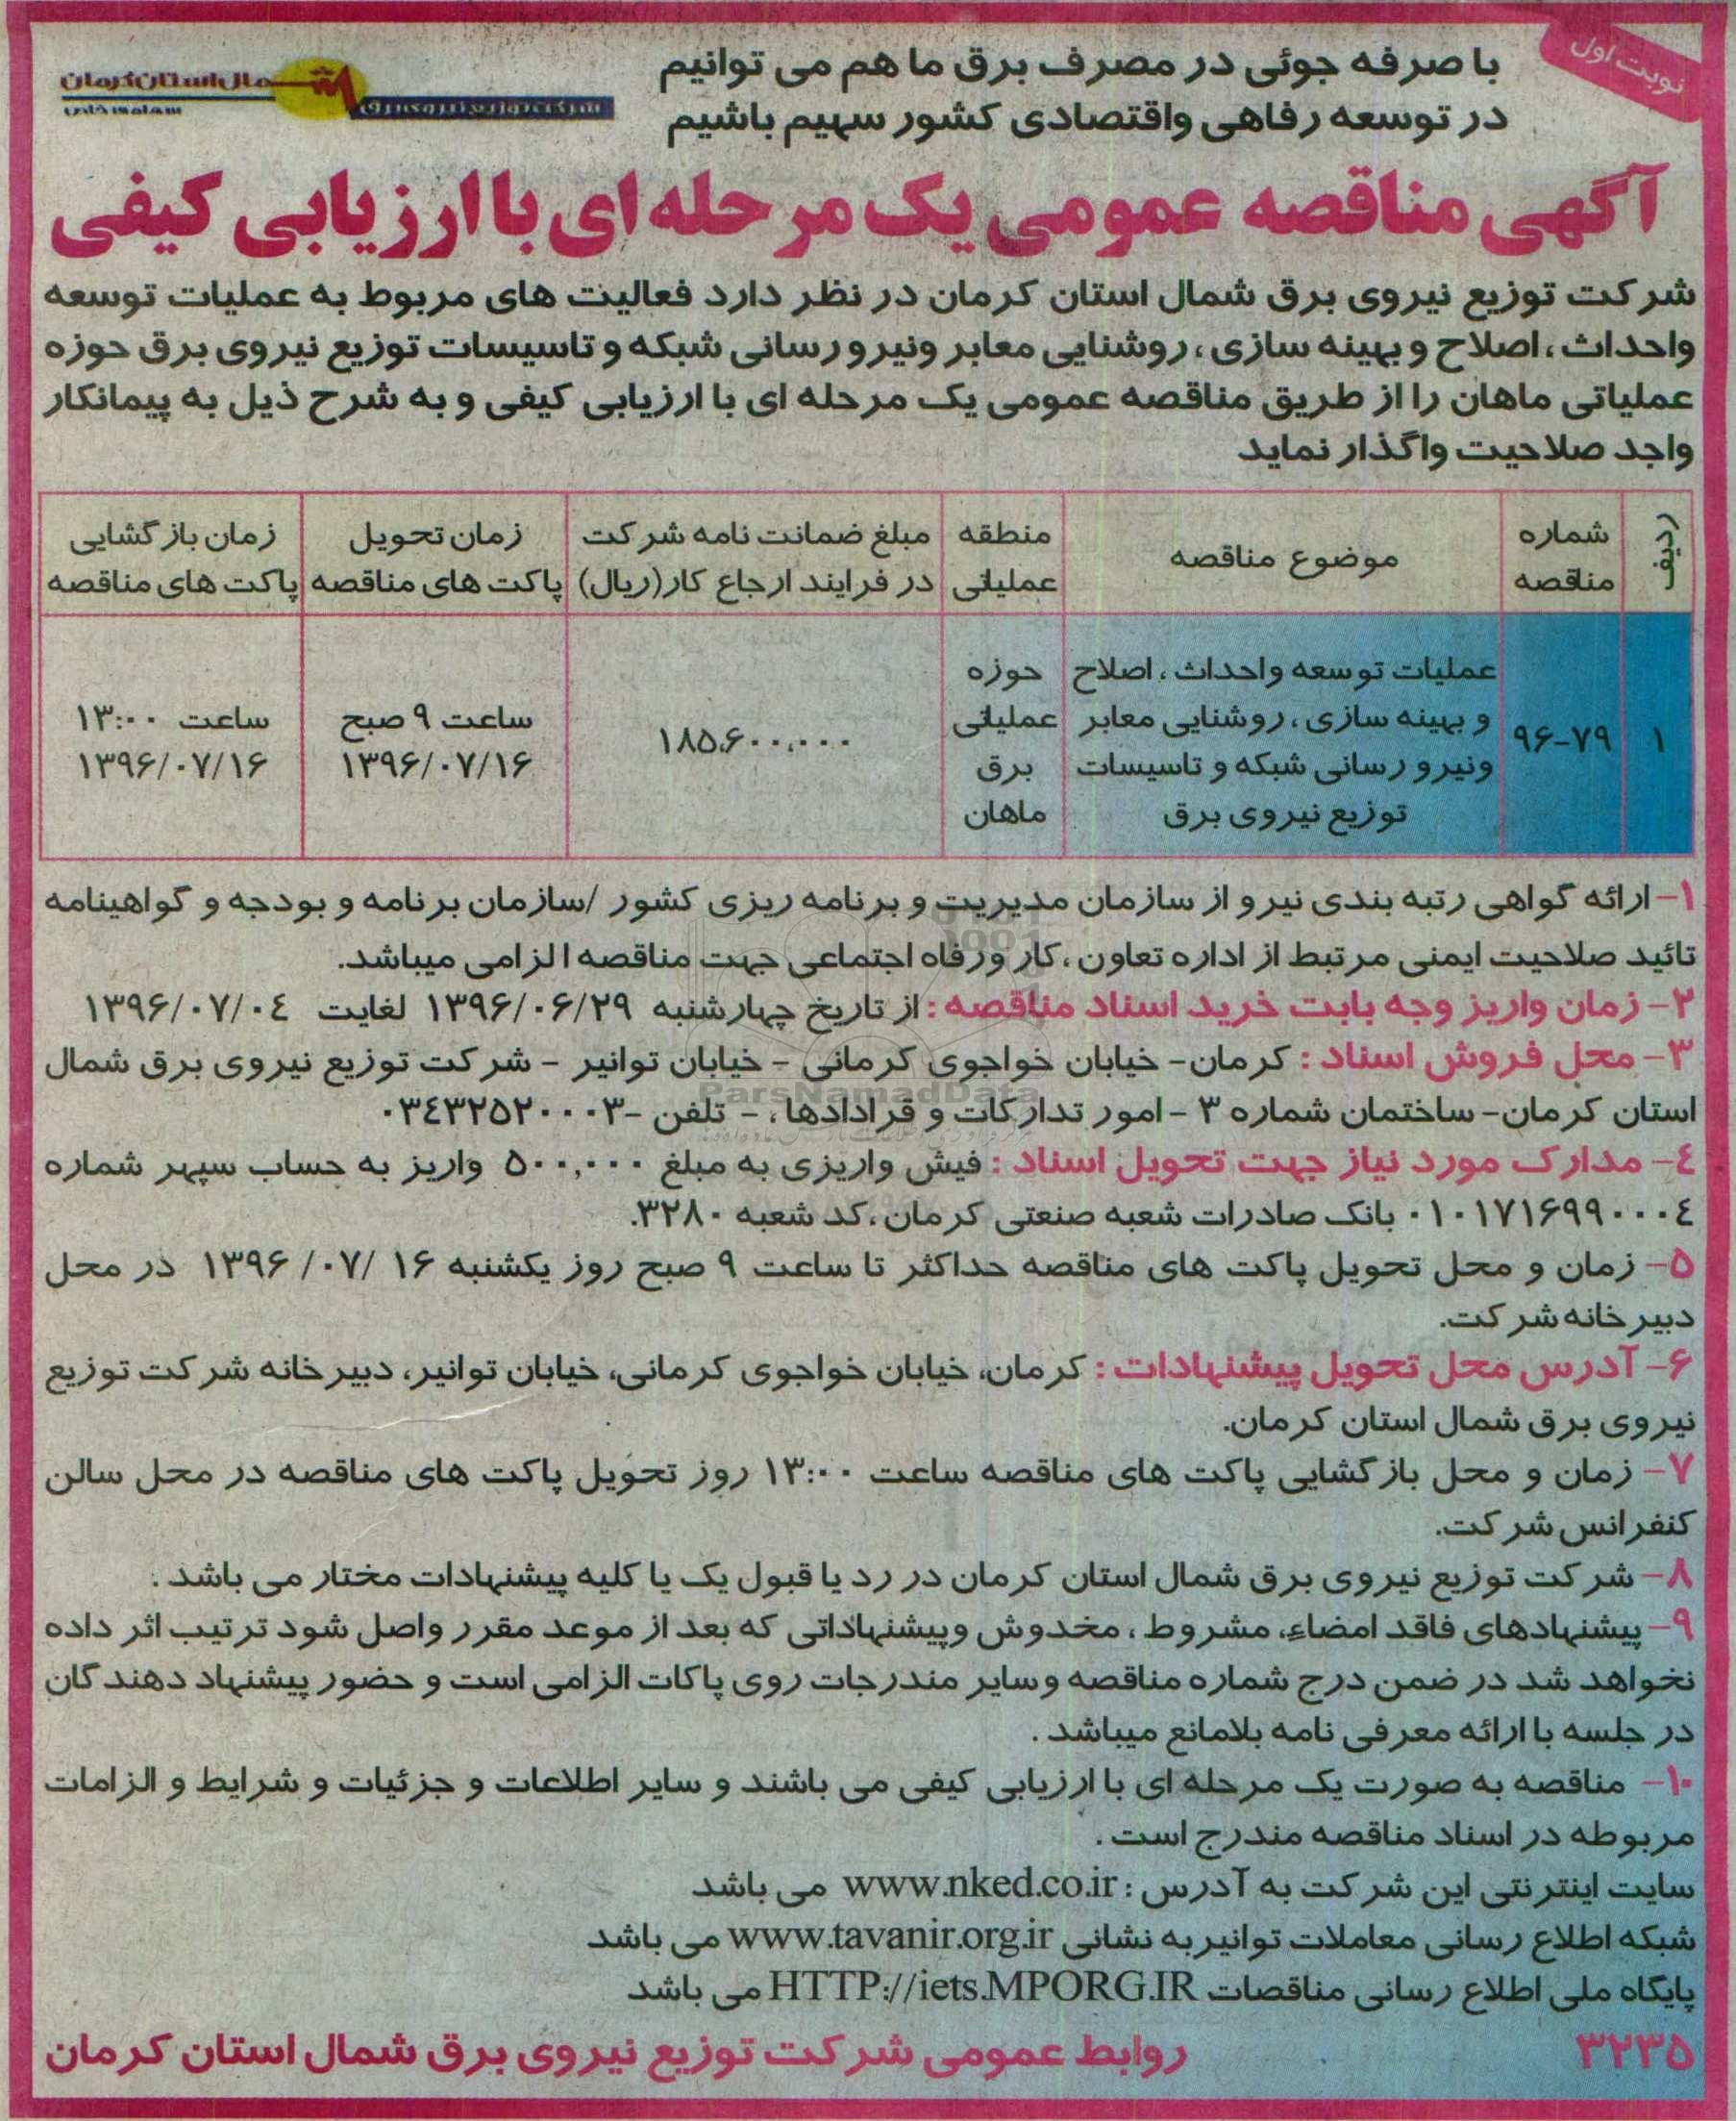 نوبت اول
با صرفه جوئی در مصرف برق ما هم می توانیم
در توسعه رفاهی واقتصادی کشور سهیم باشیم
شمال استان کرمان
شرکت توزیع نیروی برق
سهامی خاص
آگهی مناقصه عمومی یک مرحله ای با ارزیابی کیفی
شرکت توزیع نیروی برق شمال استان کرمان در نظر دارد فعالیت های مربوط به عملیات توسعه
واحداث ، اصلاح و بهینه سازی ، روشنایی معابر ونیرو رسانی شبکه و تاسیسات توزیع نیروی برق حوزه
عملیاتی ماهان را از طریق مناقصه عمومی یک مرحله ای با ارزیابی کیفی و به شرح ذیل به پیمانکار
واجد صلاحیت واگذار نماید
ردیف | شماره مناقصه | موضوع مناقصه | منطقه عملیاتی | مبلغ ضمانت نامه شرکت در فرایند ارجاع کار(ریال) | زمان تحویل پاکت های مناقصه | زمان بازگشایی پاکت های مناقصه
۱ | ۹۶-۷۹ | عملیات توسعه واحداث ، اصلاح و بهینه سازی ، روشنایی معابر ونیرو رسانی شبکه و تاسیسات توزیع نیروی برق | حوزه عملیاتی برق ماهان | ۱۸۵،۶۰۰،۰۰۰ | ساعت ۹ صبح ۱۳۹۶/۰۷/۱۶ | ساعت ۱۳:۰۰ ۱۳۹۶/۰۷/۱۶
۱- ارائه گواهی رتبه بندی نیرو از سازمان مدیریت و برنامه ریزی کشور /سازمان برنامه و بودجه و گواهینامه
تائید صلاحیت ایمنی مرتبط از اداره تعاون ،کار ورفاه اجتماعی جهت مناقصه الزامی میباشد.
۲- زمان واریز وجه بابت خرید اسناد مناقصه : از تاریخ چهارشنبه ۱۳۹۶/۰۶/۲۹ لغایت ۱۳۹۶/۰۷/۰٤
۳- محل فروش اسناد : کرمان- خیابان خواجوی کرمانی - خیابان توانیر - شرکت توزیع نیروی برق شمال
استان کرمان- ساختمان شماره ۳ - امور تدارکات و قرادادها ، - تلفن -۰۳٤۳۲۵۲۰۰۰۳
٤- مدارک مورد نیاز جهت تحویل اسناد : فیش واریزی به مبلغ ۵۰۰,۰۰۰ واریز به حساب سپهر شماره
۰۱۰۱۷۱۶۹۹۰۰۰٤ بانک صادرات شعبه صنعتی کرمان ،کد شعبه ۳۲۸۰.
۵- زمان و محل تحویل پاکت های مناقصه حداکثر تا ساعت ۹ صبح روز یکشنبه ۱۶ /۰۷/ ۱۳۹۶ در محل
دبیرخانه شرکت.
۶- آدرس محل تحویل پیشنهادات : کرمان، خیابان خواجوی کرمانی، خیابان توانیر، دبیرخانه شرکت توزیع
نیروی برق شمال استان کرمان.
۷- زمان و محل بازگشایی پاکت های مناقصه ساعت ۱۳:۰۰ روز تحویل پاکت های مناقصه در محل سالن
کنفرانس شرکت.
۸- شرکت توزیع نیروی برق شمال استان کرمان در رد یا قبول یک یا کلیه پیشنهادات مختار می باشد .
۹- پیشنهادهای فاقد امضاء، مشروط ، مخدوش وپیشنهاداتی که بعد از موعد مقرر واصل شود ترتیب اثر داده
نخواهد شد در ضمن درج شماره مناقصه وسایر مندرجات روی پاکات الزامی است و حضور پیشنهاد دهندگان
در جلسه با ارائه معرفی نامه بلامانع میباشد .
۱۰- مناقصه به صورت یک مرحله ای با ارزیابی کیفی می باشند و سایر اطلاعات و جزئیات و شرایط و الزامات
مربوطه در اسناد مناقصه مندرج است .
سایت اینترنتی این شرکت به آدرس : www.nked.co.ir می باشد
شبکه اطلاع رسانی معاملات توانیر به نشانی www.tavanir.org.ir می باشد
پایگاه ملی اطلاع رسانی مناقصات HTTP://iets.MPORG.IR می باشد
۳۲۳۵
روابط عمومی شرکت توزیع نیروی برق شمال استان کرمان
ParsNamadData